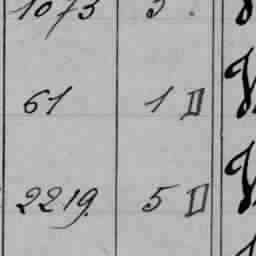 1073 5.
61 1 II
2219. 5 II